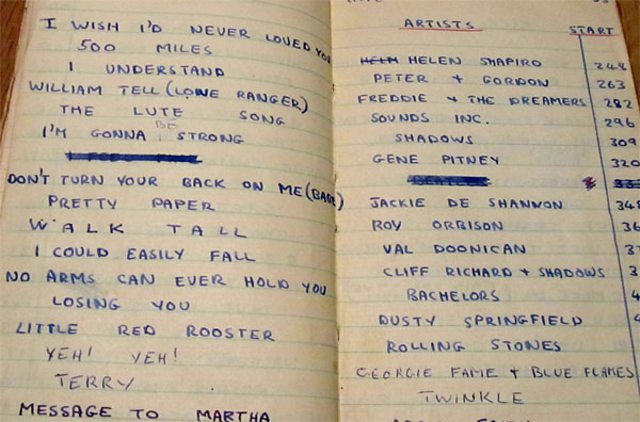 I WISH I'D NEVER LOVED YOU
500 MILES
I UNDERSTAND
WILLIAM TELL (LONE RANGER)
THE LUTE SONG
I'M GONNA BE STRONG
DON'T TURN YOUR BACK ON ME (BABE)
PRETTY PAPER
WALK TALL
I COULD EASILY FALL
NO ARMS CAN EVER HOLD YOU
LOSING YOU
LITTLE RED ROOSTER
YEH! YEH!
TERRY
MESSAGE TO MARTHA
ARTISTS START
HELEN SHAPIRO 248
PETER + GORDON 263
FREDDIE + THE DREAMERS 282
SOUNDS INC. 296
SHADOWS 309
GENE PITNEY 320
JACKIE DE SHANNON 34
ROY ORBISON 36
VAL DOONICAN 3
CLIFF RICHARD + SHADOWS 3
BACHELORS 4
DUSTY SPRINGFIELD
ROLLING STONES
GEORGIE FAME + BLUE FLAMES
TWINKLE